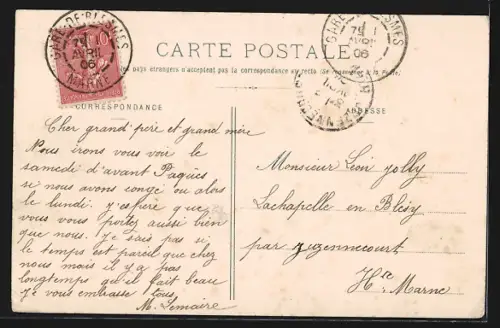 GARE-DE-BLESMES
AVRIL
06
MARNE
10
CARTE POSTALE
GARE
BLESMES
AVRIL
06
pays étrangers n'acceptent pas la correspondance au recto
CORRESPONDANCE
ADRESSE
Cher grand'père et grand mère
Nous irons vous voir le
samedi d'avant Pâques
si nous avons congé ou alors
le lundi. J'espère que
vous vous portez aussi bien
que nous. Je sais pas si
le temps est pareil que chez
nous mais il y a pas
longtemps qu'il fait beau
Je vous embrasse tous
M. Lemaire
Monsieur Léon Jolly
Lachapelle en Blésy
par Juzennecourt
Hte Marne